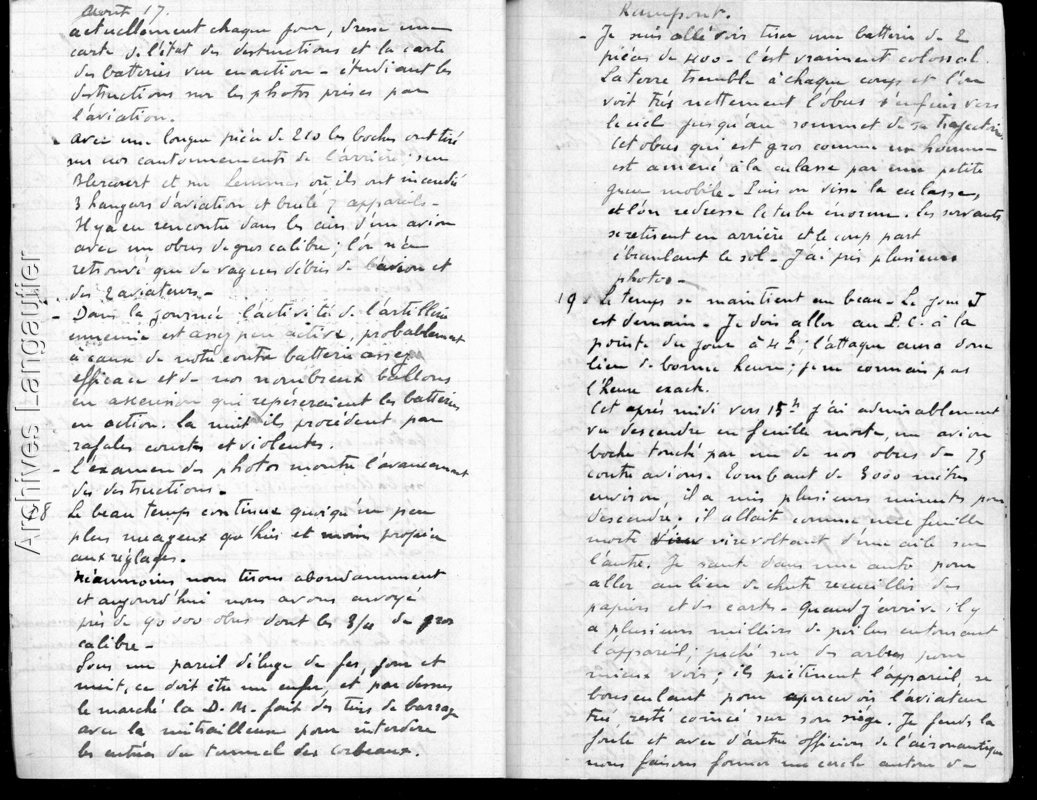 Août 17.
actuellement chaque jour, dresse une
carte de l'état des destructions et la carte
des batteries vue en action - étudiant les
destructions sur les photos prises par
l'aviation.
- Avec une longue pièce de 210 les boches ont tiré
sur nos cantonnements de l'arrière; sur
Blercourt et sur Lemmes où ils ont incendié
3 hangars d'aviation et brulé 7 appareils -
Il y a eu rencontre dans les airs d'un avion
avec un obus de gros calibre; l'on n'a
retrouvé que de vagues débris de l'avion et
des 2 aviateurs -
- Dans la journée l'activité de l'artillerie
ennemie est assez peu active, probablement
à cause de notre contre batterie assez
efficace et de nos nombreux ballons
en ascension qui repéreraient les batteries
en action. La nuit ils procèdent par
rafales courtes et violentes.
- L'examen des photos montre l'avancement
des destructions -
18 - Le beau temps continue quoiqu'un peu
plus nuageux qu'hier et moins propice
aux réglages.
Néanmoins nous tirons abondamment
et aujourd'hui nous avons envoyé
près de 90 000 obus dont les 3/4 de gros
calibre -
Sous un pareil déluge de fer, jour et
nuit, ce doit être un enfer, et par dessus
le marché la D.M. fait des tirs de barrage
avec la mitrailleuse pour interdire
les entrées du tunnel des corbeaux.
Archives Langautier
Rampont.
- Je suis allé voir tirer une batterie de 2
pièces de 400 - c'est vraiment colossal.
La terre tremble à chaque coup et l'on
voit très nettement l'obus s'enfuir vers
le ciel jusqu'au sommet de sa trajectoire
Cet obus qui est gros comme un homme
est amené à la culasse par une petite
grue mobile - Puis on visse la culasse,
et l'on redresse le tube énorme. Les servants
se retirent en arrière et le coup part
ébranlant le sol - J'ai pris plusieurs
photos -
19. Le temps se maintient au beau - Le jour J
est demain - Je dois aller au P.C. à la
pointe du jour à 4h; l'attaque aura donc
lieu de bonne heure; je ne connais pas
l'heure exacte.
Cet après midi vers 15h j'ai admirablement
vu descendre en feuille morte, un avion
boche touché par un de nos obus de 75
contre avions. Tombant de 3000 mètres
environ, il a mis plusieurs minutes pour
descendre; il allait comme une feuille
morte virevoltant d'une aile sur
l'autre. Je saute dans une auto pour
aller au lieu de chute recueillir des
papiers et des cartes - Quand j'arrive il y
a plusieurs milliers de poilus entourant
l'appareil; juché sur des arbres pour
mieux voir; ils piétinent l'appareil, se
bousculant pour apercevoir l'aviateur
tué, resté coincé sur son siège. Je fends la
foule et avec d'autre officiers de l'aéronautique
nous faisons former un cercle autour de